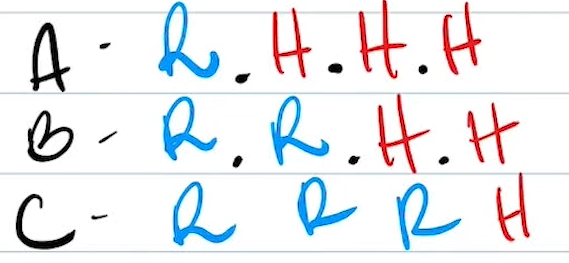 A - R . H . H . H
B - R . R . H . H
C - R R R H